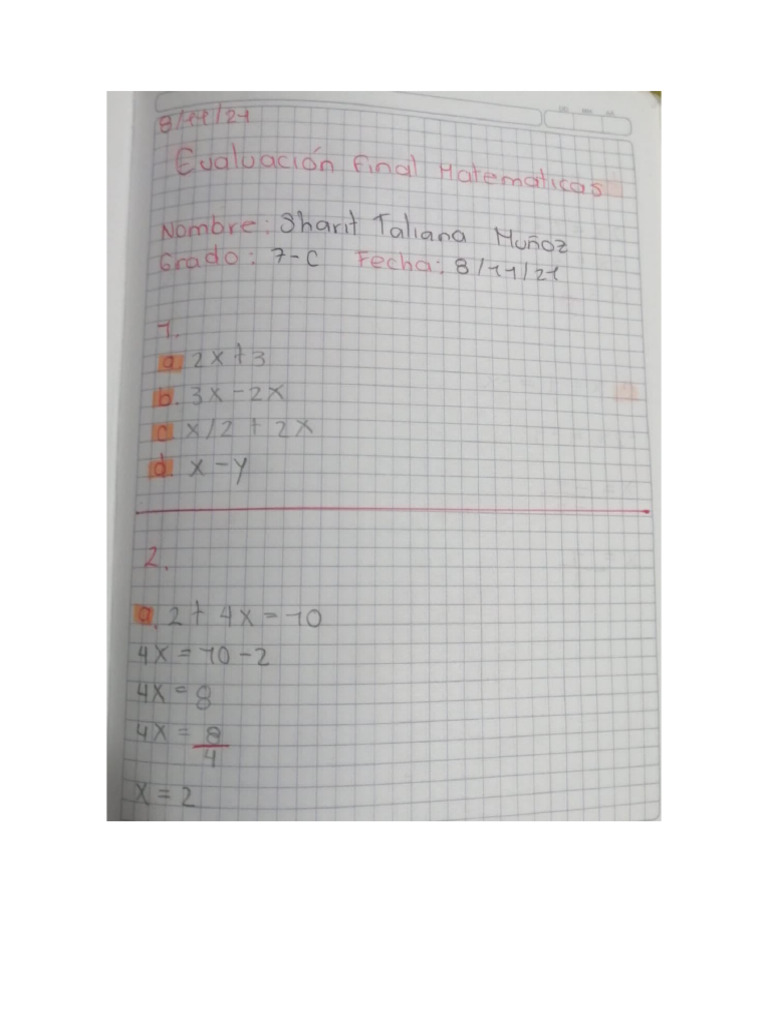 8/11/21
Evaluación final Matematicas
Nombre: Sharit Taliana Muñoz
Grado: 7-C Fecha: 8/11/21
1.
a. 2x+3
b. 3x-2x
c. x/2 + 2x
d. x-y
2.
a. 2+ 4x=10
4x=10-2
4x=8
4x= 8/4
x=2